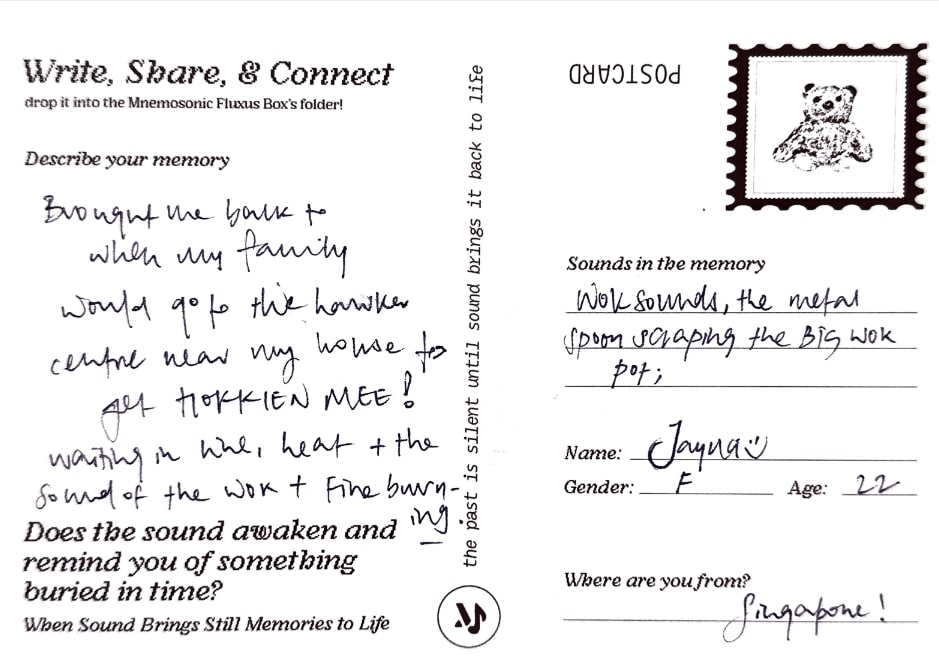 Write, Share, & Connect
drop it into the Mnemosonic Fluxus Box's folder!
Describe your memory
Brought me back to
when my family
would go to the hawker
centre near my house to
get HOKKIEN MEE!
waiting in line, heat + the
sound of the wok + Fire burn-
ing.
Does the sound awaken and
remind you of something
buried in time?
When Sound Brings Still Memories to Life
the past is silent until sound brings it back to life
POSTCARD
Sounds in the memory
Wok sounds, the metal
spoon scraping the Big wok
pot;
Name: Jayna
Gender: F Age: 22
Where are you from?
Singapore!